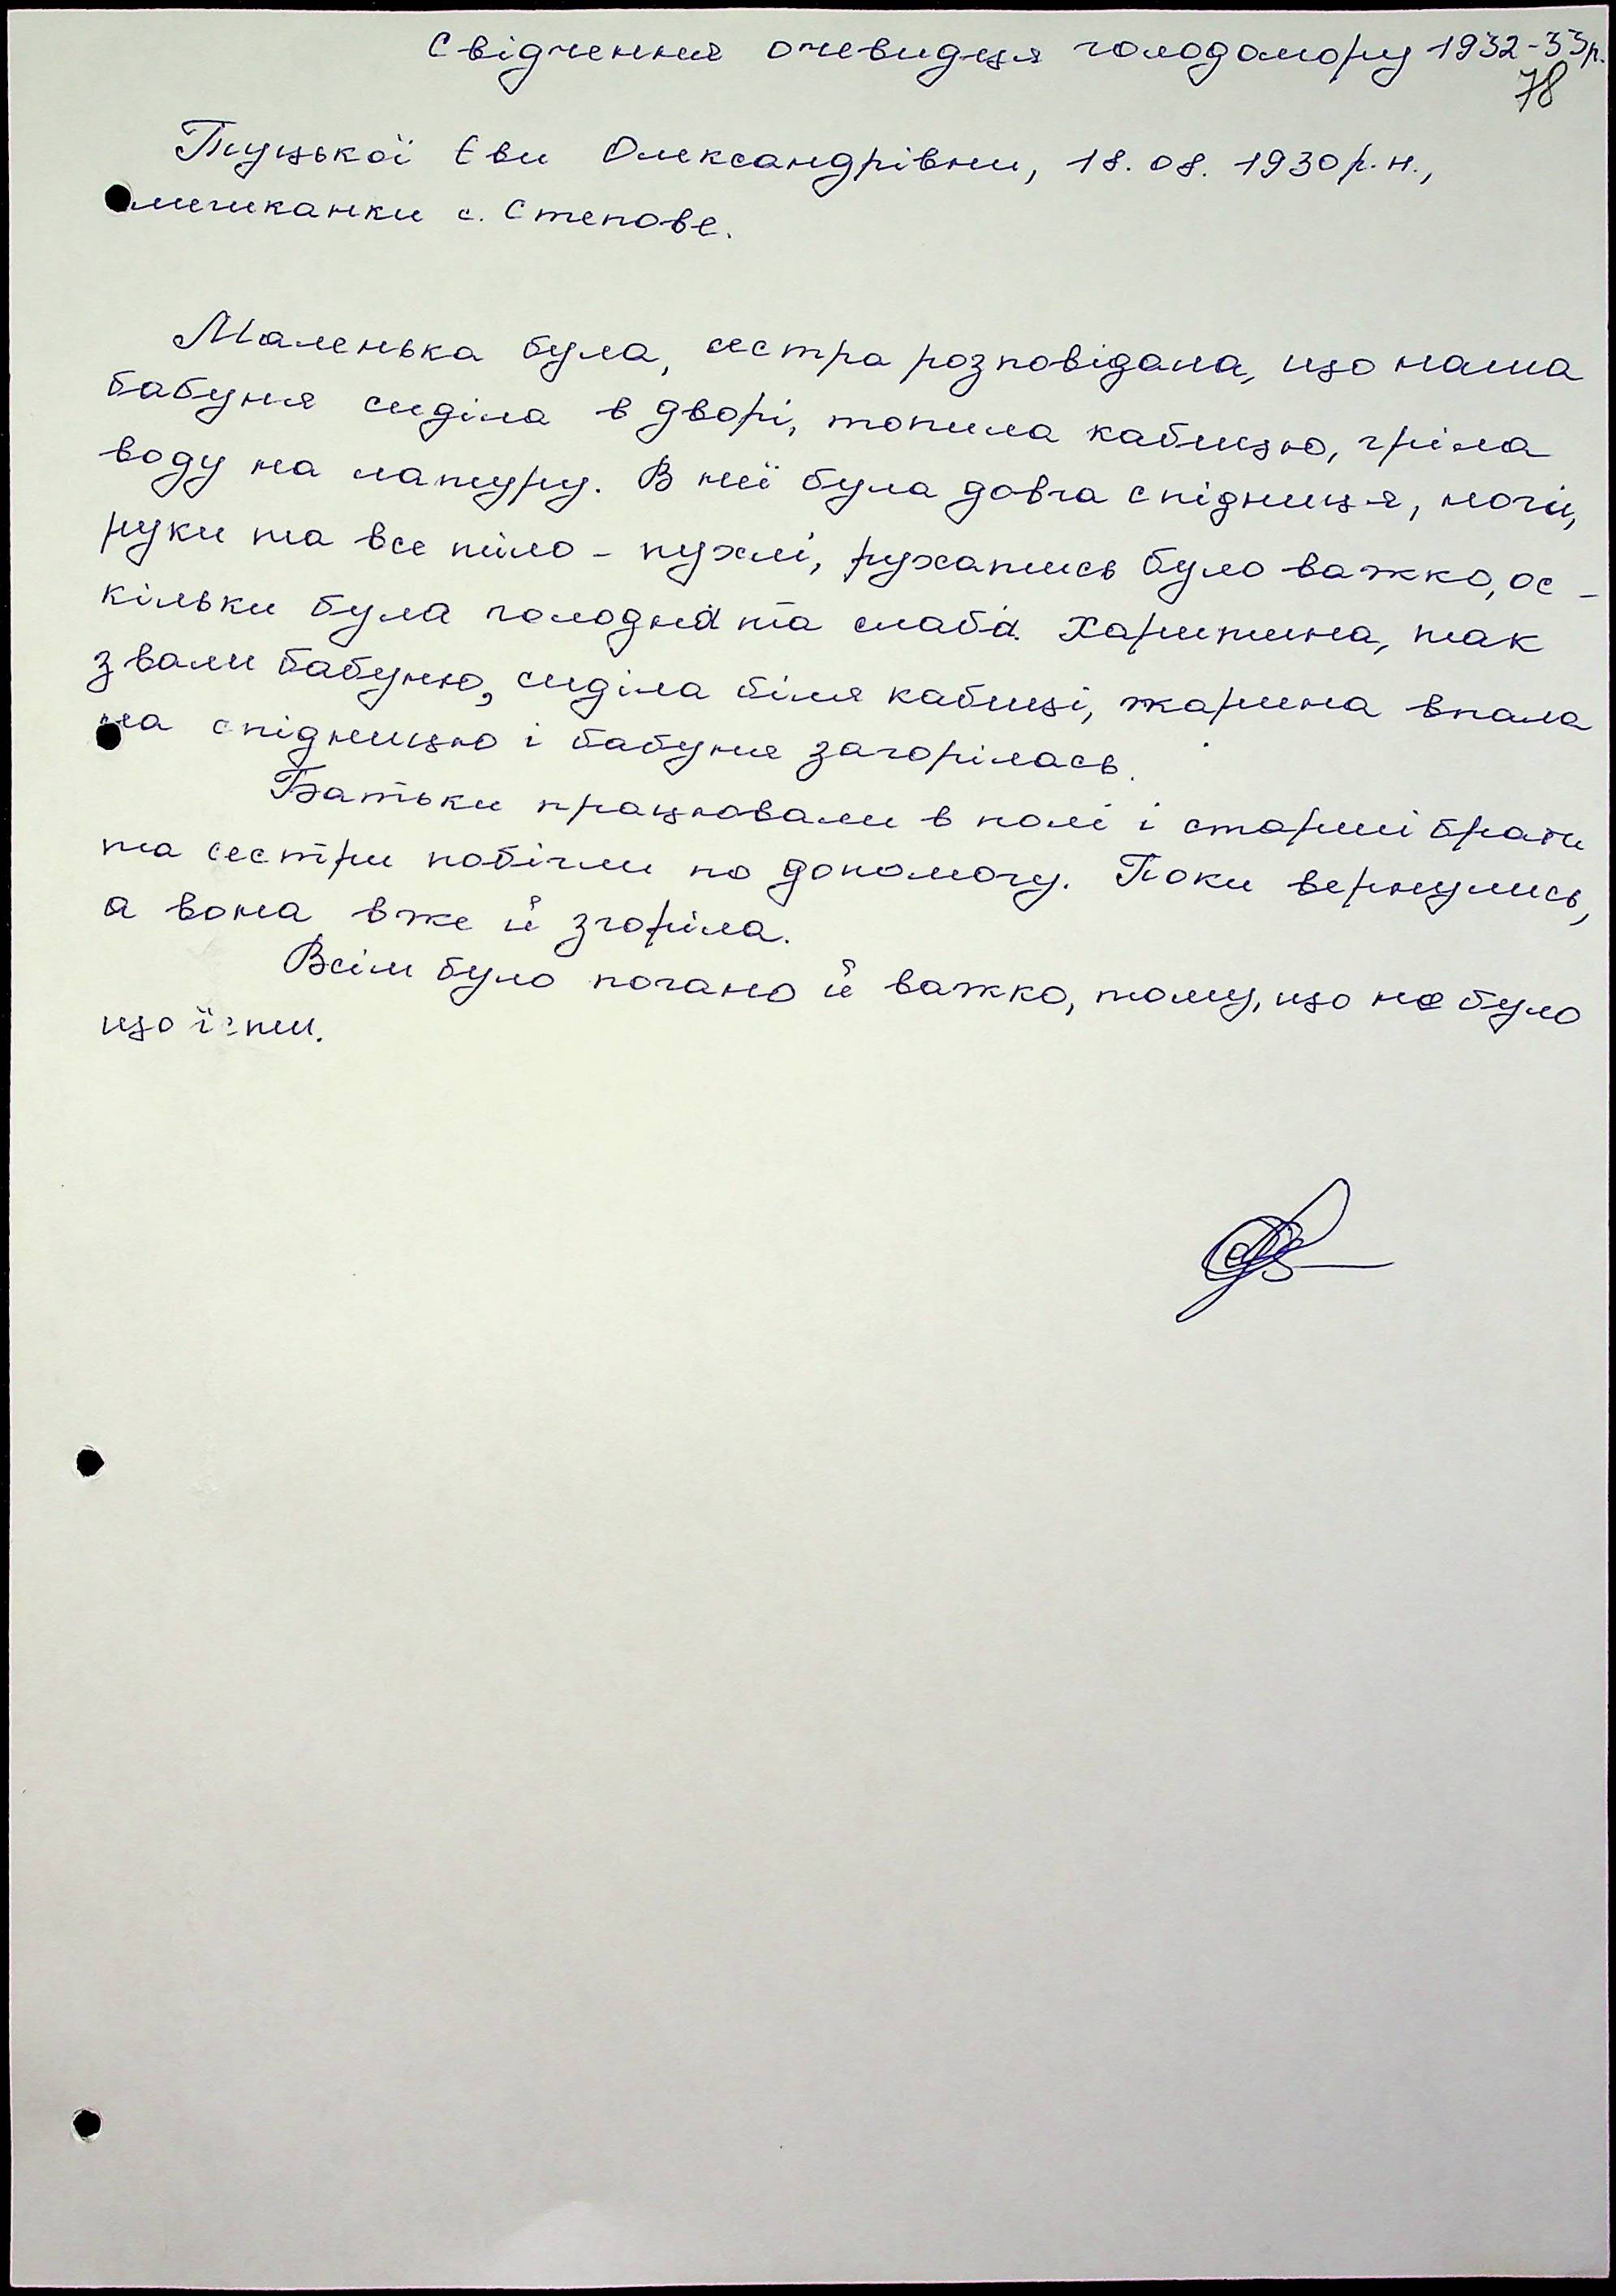 Свідчення очевидця голодомору 1932-33р.
78
Пуцької Єви Олександрівни, 18.08.1930р.н.,
мешканки с. Степове.
Маленька була, сестра розповідала, що наша
бабуня сиділа в дворі, топила кабицю, гріла
воду на затуру. В неї була довга спідниця, ноги,
руки та все тіло - пухлі, рухатись було важко, ос-
кільки була голодна та слаба. Харитина, так
звали бабуню, сиділа біля кабиці, жарина впала
на спідницю і бабуня загорілась.
Батьки працювали в полі і старші брати
та сестри побігли по допомогу. Поки вернулись,
а вона вже й згоріла.
Всім було погано й важко, тому, що не було
що їсти.